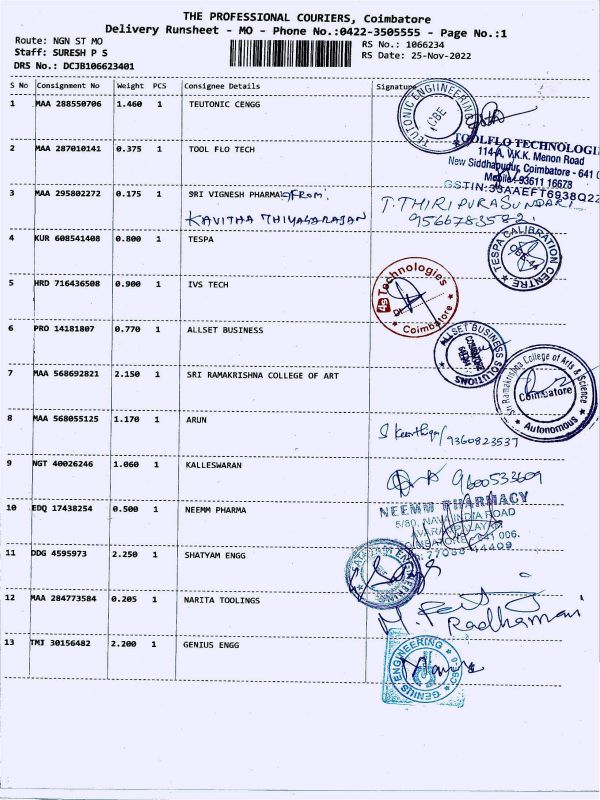 THE PROFESSIONAL COURIERS, Coimbatore
Delivery Runsheet - MO - Phone No.:0422-3505555 - Page No.:1
Route: NGN ST MO
RS No.: 1066234
Staff: SURESH P S
RS Date: 25-Nov-2022
DRS No.: DCJB106623401
S No Consignment No Weight PCS Consignee Details Signature
1 MAA 288550706 1.460 1 TEUTONIC CENGG
TEUTONIC ENGINEERING
CBE
2 MAA 287010141 0.375 1 TOOL FLO TECH
TOOLFLO TECHNOLOGI
114-A, V.K.K. Menon Road
New Siddhapudur, Coimbatore - 641 0
Mobile: 93611 16678
GSTIN:33AAEFT6938Q2Z
3 MAA 295802272 0.175 1 SRI VIGNESH PHARMA FROM:
KAVITHA THIYAGARAJAN
T. THIRIPURASUNDARI
9566783582
4 KUR 608541408 0.800 1 TESPA
TESPA CALIBRATION CENTRE
CBE-44
5 HRD 716436508 0.900 1 IVS TECH
4s Technologies
Coimbatore
6 PRO 14181807 0.770 1 ALLSET BUSINESS
ALLSET BUSINESS SOLUTIONS
COIMBATORE
641044
7 MAA 568692821 2.150 1 SRI RAMAKRISHNA COLLEGE OF ART
Sri Ramakrishna College of Arts & Science
Coimbatore
Autonomous
8 MAA 568055125 1.170 1 ARUN
9360823537
9 NGT 40026246 1.060 1 KALLESWARAN
9600533609
10 EDQ 17438254 0.500 1 NEEMM PHARMA
NEEMM PHARMACY
5/80, NAVA INDIA ROAD
AVARAMPALAYAM
COIMBATORE - 641 006.
77086 44409
11 DDG 4595973 2.250 1 SHATYAM ENGG
12 MAA 284773584 0.205 1 NARITA TOOLINGS
Radhamani
13 TMI 30156482 2.200 1 GENIUS ENGG
GENIUS ENGINEERING
CBE-6